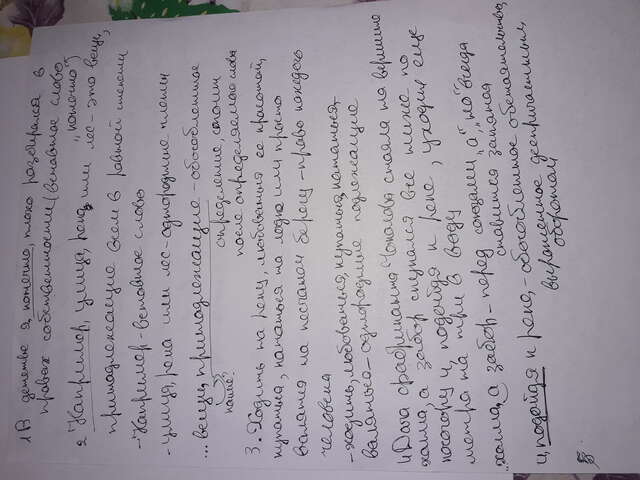 1. В детстве я, конечно, плохо разбирался в
правах собственности (вставное слово
"конечно")
2. Например, улица, река или лес - это вещи,
принадлежащие всем в равной степени
- Например - вставное слово
- улица, река или лес - однородные члены
... вещи, принадлежащие - обособленное
какие? определение, стоит
после определяемого слова
3. Ходить на реку, любоваться ее красотой,
купаться, кататься на лодке или просто
валяться на песчаном берегу - право каждого
человека
- ходить, любоваться, купаться, кататься,
валяться - однородные подлежащие
4. Дача фабриканта Чопалова стояла на вершине
холма, а забор спускался все ниже по
косогору и, подойдя к реке, уходил еще
метра на три в воду
.. холма, а забор - перед союзами "а", "но" всегда
ставится запятая
и, подойдя к реке, - обособленное обстоятельство,
выраженное деепричастным
оборотом
5